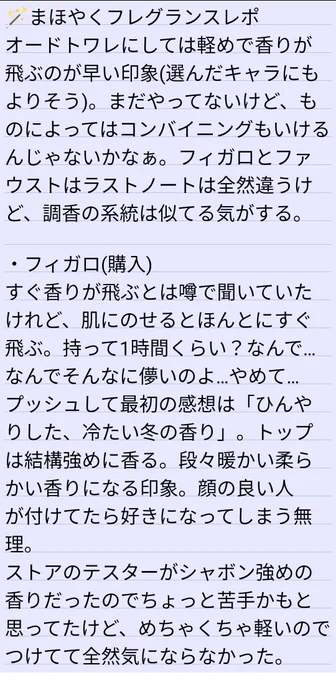 🪄まほやくフレグランスレポ
オードトワレにしては軽めで香りが
飛ぶのが早い印象(選んだキャラにも
よりそう)。まだやってないけど、も
のによってはコンバイニングもいける
んじゃないかなぁ。フィガロとファ
ウストはラストノートは全然違うけ
ど、調香の系統は似てる気がする。
・フィガロ(購入)
すぐ香りが飛ぶとは噂で聞いていた
けれど、肌にのせるとほんとにすぐ
飛ぶ。持って1時間くらい？なんで…
なんでそんなに儚いのよ…やめて…
プッシュして最初の感想は「ひんや
りした、冷たい冬の香り」。トップ
は結構強めに香る。段々暖かい柔ら
かい香りになる印象。顔の良い人
が付けてたら好きになってしまう無
理。
ストアのテスターがシャボン強めの
香りだったのでちょっと苦手かもと
思ってたけど、めちゃくちゃ軽いので
つけてて全然気にならなかった。